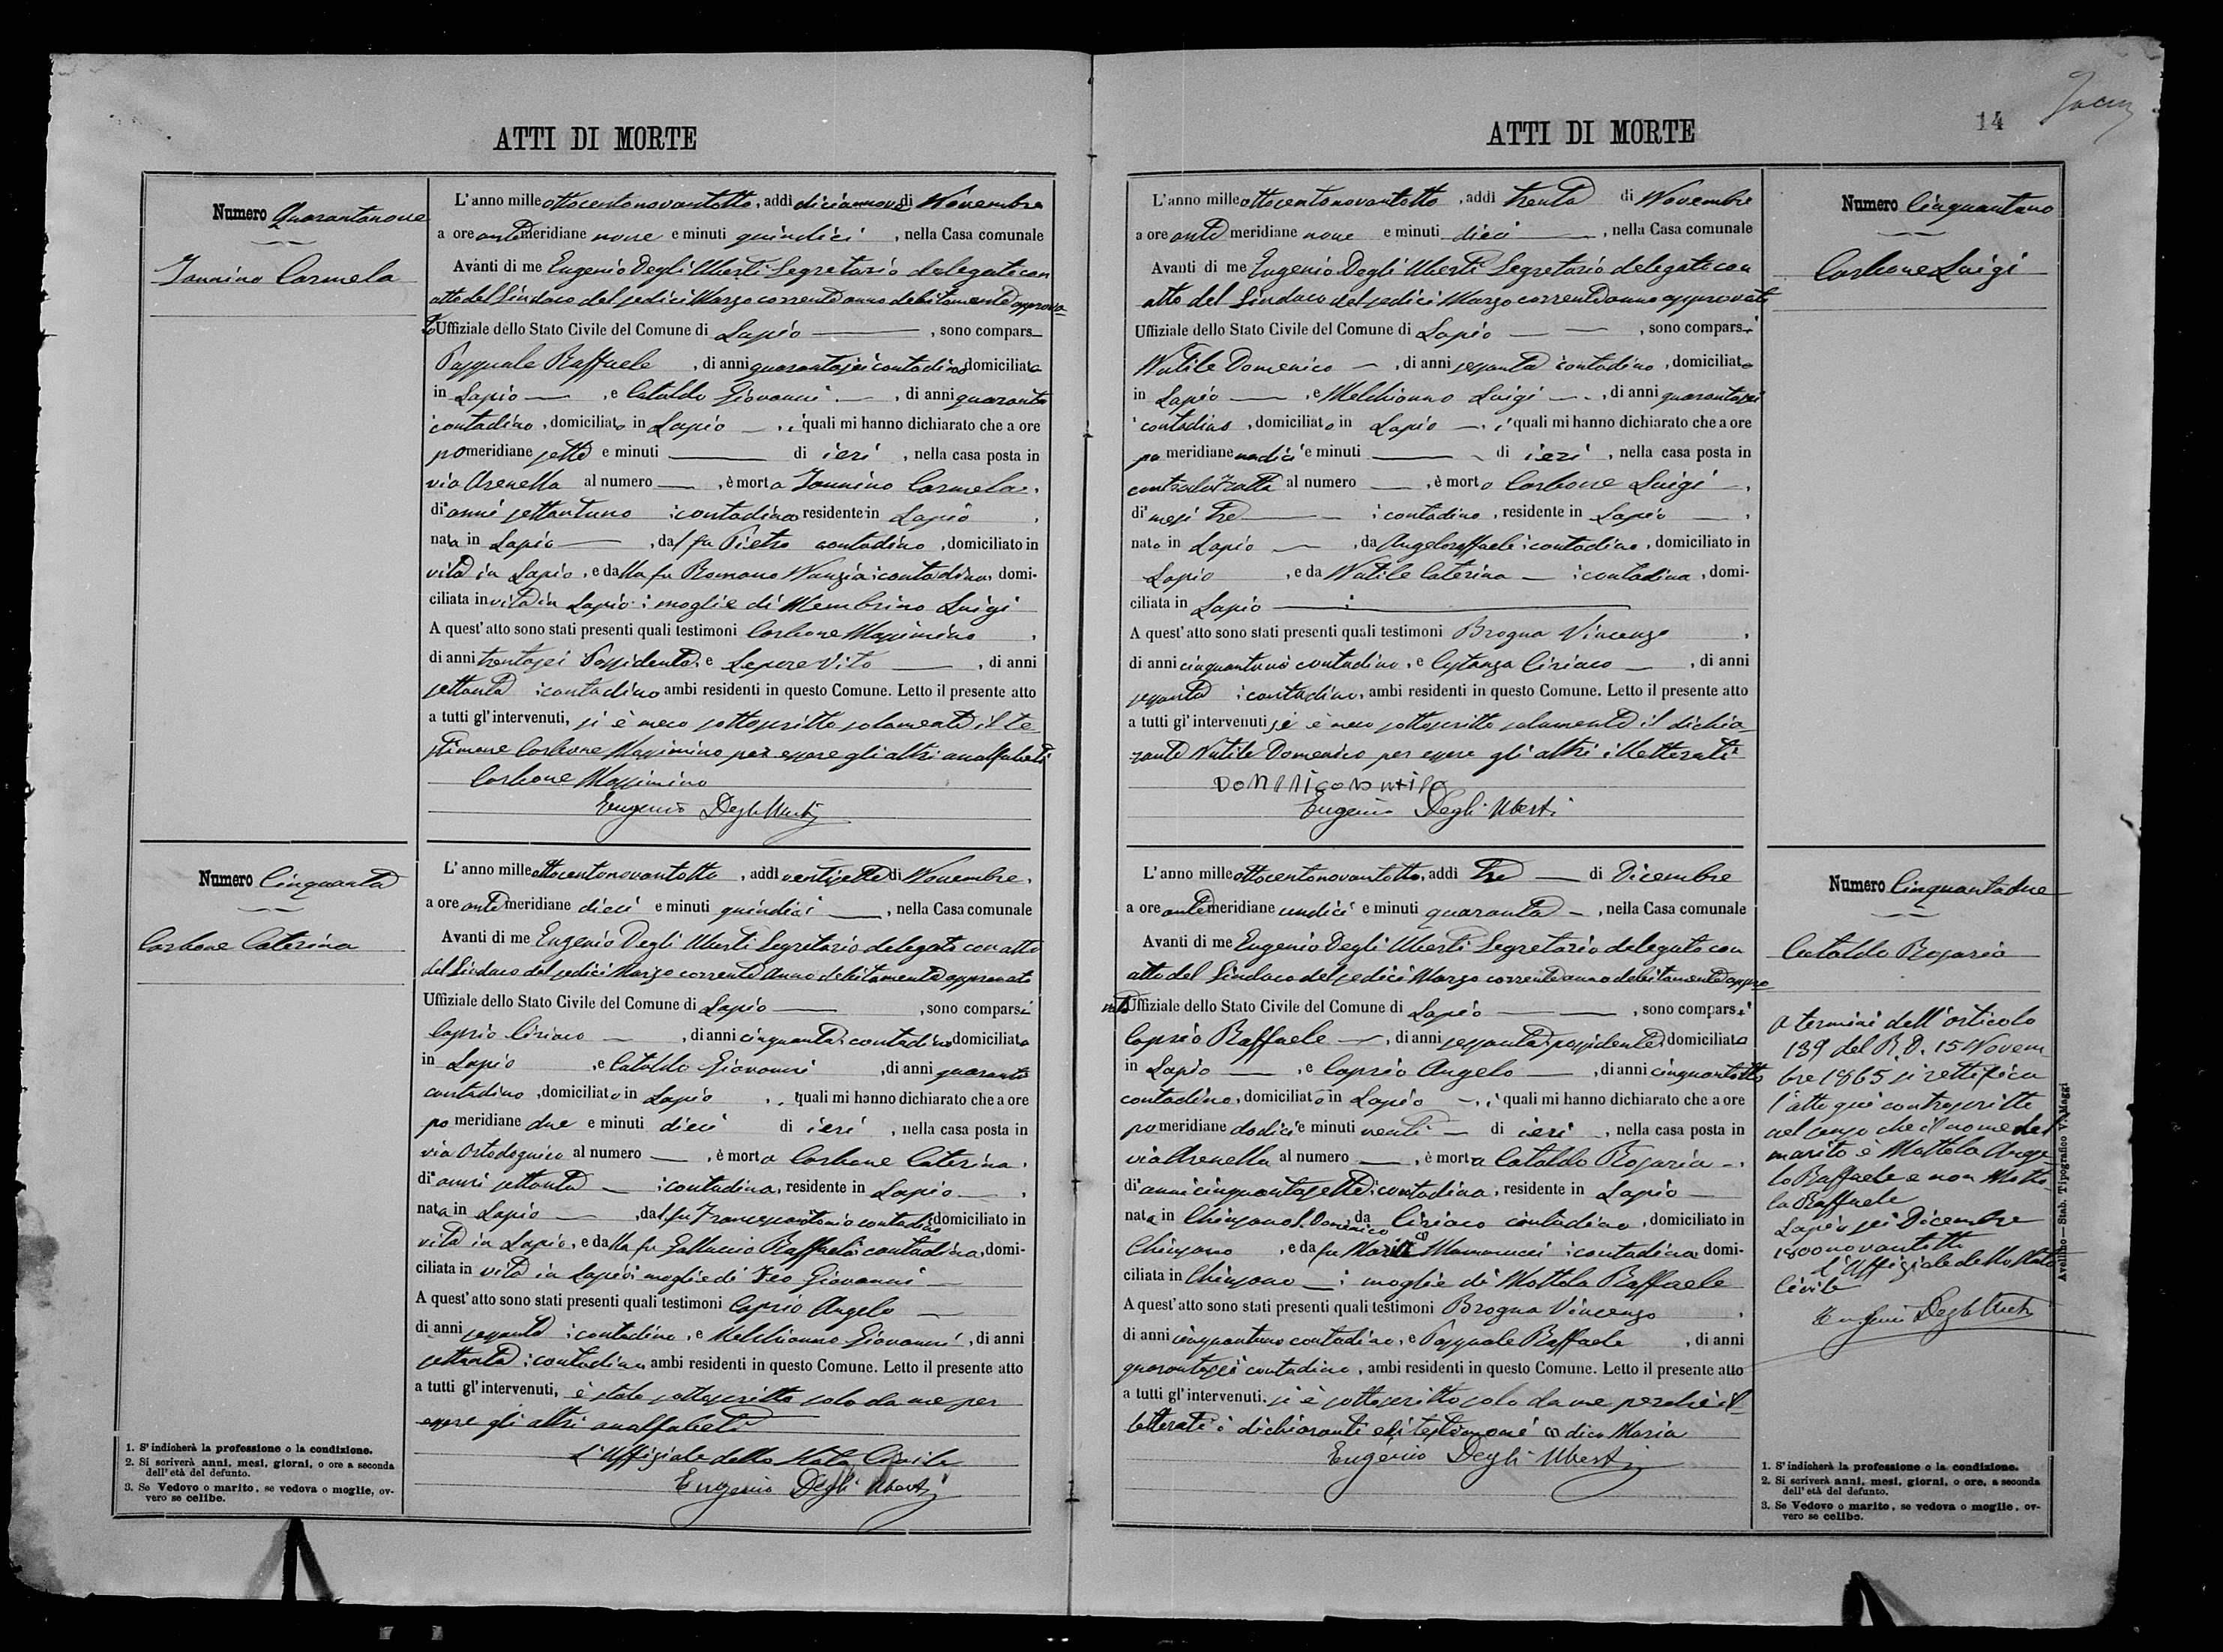 ATTI DI MORTE
Numero Quarantanove
Iannino Carmela
L'anno mille ottocentonovantotto, addì diciannove di Novembre
a ore antemeridiane nove e minuti quindici, nella Casa comunale
Avanti di me Eugenio Degli Uberti Segretario delegato con
atto del Sindaco del sedici Marzo corrente anno debitamente approva-
to Uffiziale dello Stato Civile del Comune di Lapio, sono compars
Pasquale Raffaele, di anni quarantasei contadino domiciliato
in Lapio, e Cataldo Giovanni, di anni quaranta
contadino, domiciliato in Lapio, i quali mi hanno dichiarato che a ore
pomeridiane sette e minuti di ieri, nella casa posta in
via Arenella al numero, è morta Iannino Carmela,
di anni settantuno contadina residente in Lapio,
nata in Lapio, dal fu Pietro contadino, domiciliato in
vita in Lapio, e dalla fu Romano Nunzia contadina, domi-
ciliata in vita in Lapio moglie di Membrino Luigi
A quest'atto sono stati presenti quali testimoni Carbone Massimino,
di anni trentasei Possidente, e Lepore Vito, di anni
settanta contadino ambi residenti in questo Comune. Letto il presente atto
a tutti gl'intervenuti, si è meco sottoscritto solamente il te-
stimone Carbone Massimino per essere gli altri analfabeti
Carbone Massimino
Eugenio Degli Uberti
Numero Cinquanta
Carbone Caterina
L'anno mille ottocentonovantotto, addì ventisette di Novembre,
a ore antemeridiane dieci e minuti quindici, nella Casa comunale
Avanti di me Eugenio Degli Uberti Segretario delegato con atto
del Sindaco del sedici Marzo corrente Anno debitamente approvato
Uffiziale dello Stato Civile del Comune di Lapio, sono comparsi
Caprio Ciriaco, di anni cinquanta contadino domiciliato
in Lapio, e Cataldo Giovanni, di anni quaranta
contadino, domiciliato in Lapio, quali mi hanno dichiarato che a ore
pomeridiane due e minuti dieci di ieri, nella casa posta in
via al numero, è morta Carbone Caterina,
di anni settanta contadina, residente in Lapio,
nata in Lapio, dal fu Francescantonio contadino domiciliato in
vita in Lapio, e dalla fu Galluccio Raffaela contadina, domi-
ciliata in vita in Lapio moglie di Feo Giovanni
A quest'atto sono stati presenti quali testimoni Caprio Angelo
di anni sessanta contadino, e Melchionno Giovanni, di anni
settanta contadino ambi residenti in questo Comune. Letto il presente atto
a tutti gl'intervenuti, è stato sottoscritto solo da me per
essere gli altri analfabeti
L'Uffiziale dello Stato Civile
Eugenio Degli Uberti
1. S'indicherà la professione o la condizione.
2. Si scriverà anni, mesi, giorni, o ore a seconda
dell'età del defunto.
3. Se Vedovo o marito, se vedova o moglie, ov-
vero se celibe.
ATTI DI MORTE
14
L'anno mille ottocentonovantotto, addì trenta di Novembre
a ore antemeridiane nove e minuti dieci, nella Casa comunale
Avanti di me Eugenio Degli Uberti Segretario delegato con
atto del Sindaco del sedici Marzo corrente anno approvato
Uffiziale dello Stato Civile del Comune di Lapio, sono comparsi
Nutile Domenico, di anni sessanta contadino, domiciliato
in Lapio, e Melchionno Luigi, di anni quarantasei
contadino, domiciliato in Lapio, i quali mi hanno dichiarato che a ore
pomeridiane undici e minuti di ieri, nella casa posta in
contrada Fratta al numero, è morto Carbone Luigi,
di mesi tre contadino, residente in Lapio,
nato in Lapio, da Angeloraffaele contadino, domiciliato in
Lapio, e da Nutile Caterina contadina, domi-
ciliata in Lapio
A quest'atto sono stati presenti quali testimoni Brogna Vincenzo,
di anni cinquantuno contadino, e Costanza Ciriaco, di anni
sessanta contadino, ambi residenti in questo Comune. Letto il presente atto
a tutti gl'intervenuti si è meco sottoscritto solamente il dichia-
rante Nutile Domenico per essere gli altri illetterati
Domenico Nutile
Eugenio Degli Uberti
Numero Cinquantuno
Carbone Luigi
L'anno mille ottocentonovantotto, addì tre di Dicembre
a ore antemeridiane undici e minuti quaranta, nella Casa comunale
Avanti di me Eugenio Degli Uberti Segretario delegato con
atto del Sindaco del sedici Marzo corrente anno debitamente appro-
vato Uffiziale dello Stato Civile del Comune di Lapio, sono comparsi
Caprio Raffaele, di anni sessanta possidente domiciliato
in Lapio, e Caprio Angelo, di anni cinquantotto
contadino, domiciliato in Lapio, i quali mi hanno dichiarato che a ore
pomeridiane dodici e minuti venti di ieri, nella casa posta in
via Arenella al numero, è morta Cataldo Rosaria,
di anni cinquantasette contadina, residente in Lapio
nata in Chiusano S. Domenico da Ciriaco contadino, domiciliato in
Chiusano, e da fu Maria Mannarucci contadina domi-
ciliata in Chiusano moglie di Mottola Raffaele
A quest'atto sono stati presenti quali testimoni Brogna Vincenzo,
di anni cinquantuno contadino, e Pasquale Raffaele, di anni
quarantasei contadino, ambi residenti in questo Comune. Letto il presente atto
a tutti gl'intervenuti. si è sottoscritto solo da me perchè il-
letterati i dichiaranti ed i testimoni dico Maria
Eugenio Degli Uberti
Numero Cinquantadue
Cataldo Rosaria
A termini dell'articolo
139 del R. D. 15 Novem-
bre 1865 si rettifica
l'atto qui controscritto
nel senso che il nome del
marito è Mottola Ange-
lo Raffaele e non Motto-
la Raffaele
Lapio sei Dicembre
1800novantotto
L'Uffiziale dello Stato
Civile
Eugenio Degli Uberti
Avellino—Stab. Tipografico V. Maggi
1. S'indicherà la professione o la condizione.
2. Si scriverà anni, mesi, giorni, o ore, a seconda
dell'età del defunto.
3. Se Vedovo o marito, se vedova o moglie, ov-
vero se celibe.